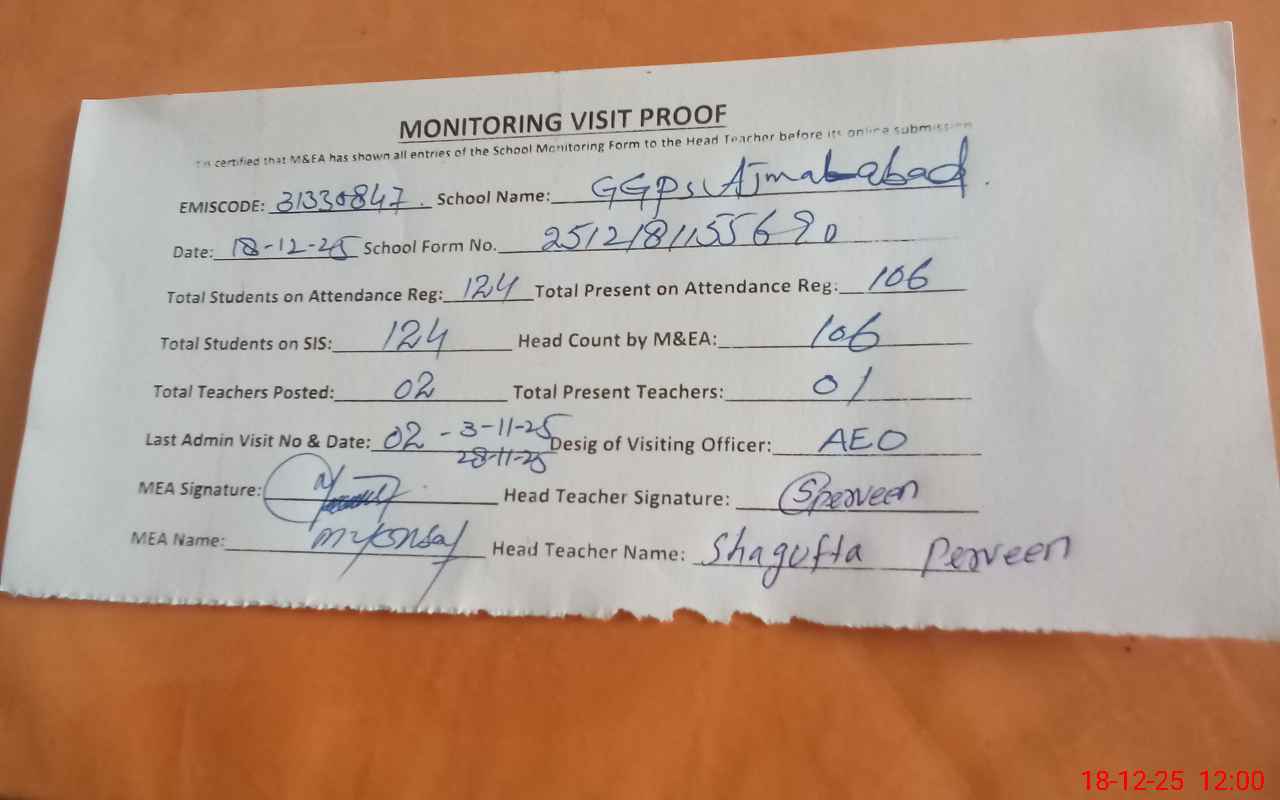 MONITORING VISIT PROOF
It is certified that M&EA has shown all entries of the School Monitoring Form to the Head Teacher before its online submission
EMISCODE: 31330847. School Name: GGPS Ajmalabad.
Date: 18-12-25 School Form No. 251218115569 0
Total Students on Attendance Reg: 124 Total Present on Attendance Reg: 106
Total Students on SIS: 124 Head Count by M&EA: 106
Total Teachers Posted: 02 Total Present Teachers: 01
Last Admin Visit No & Date: 02 - 3-11-25 Desig of Visiting Officer: AEO
28-11-25
MEA Signature: Head Teacher Signature: SPerveen
MEA Name: Head Teacher Name: Shagufta Perveen
18-12-25 12:00